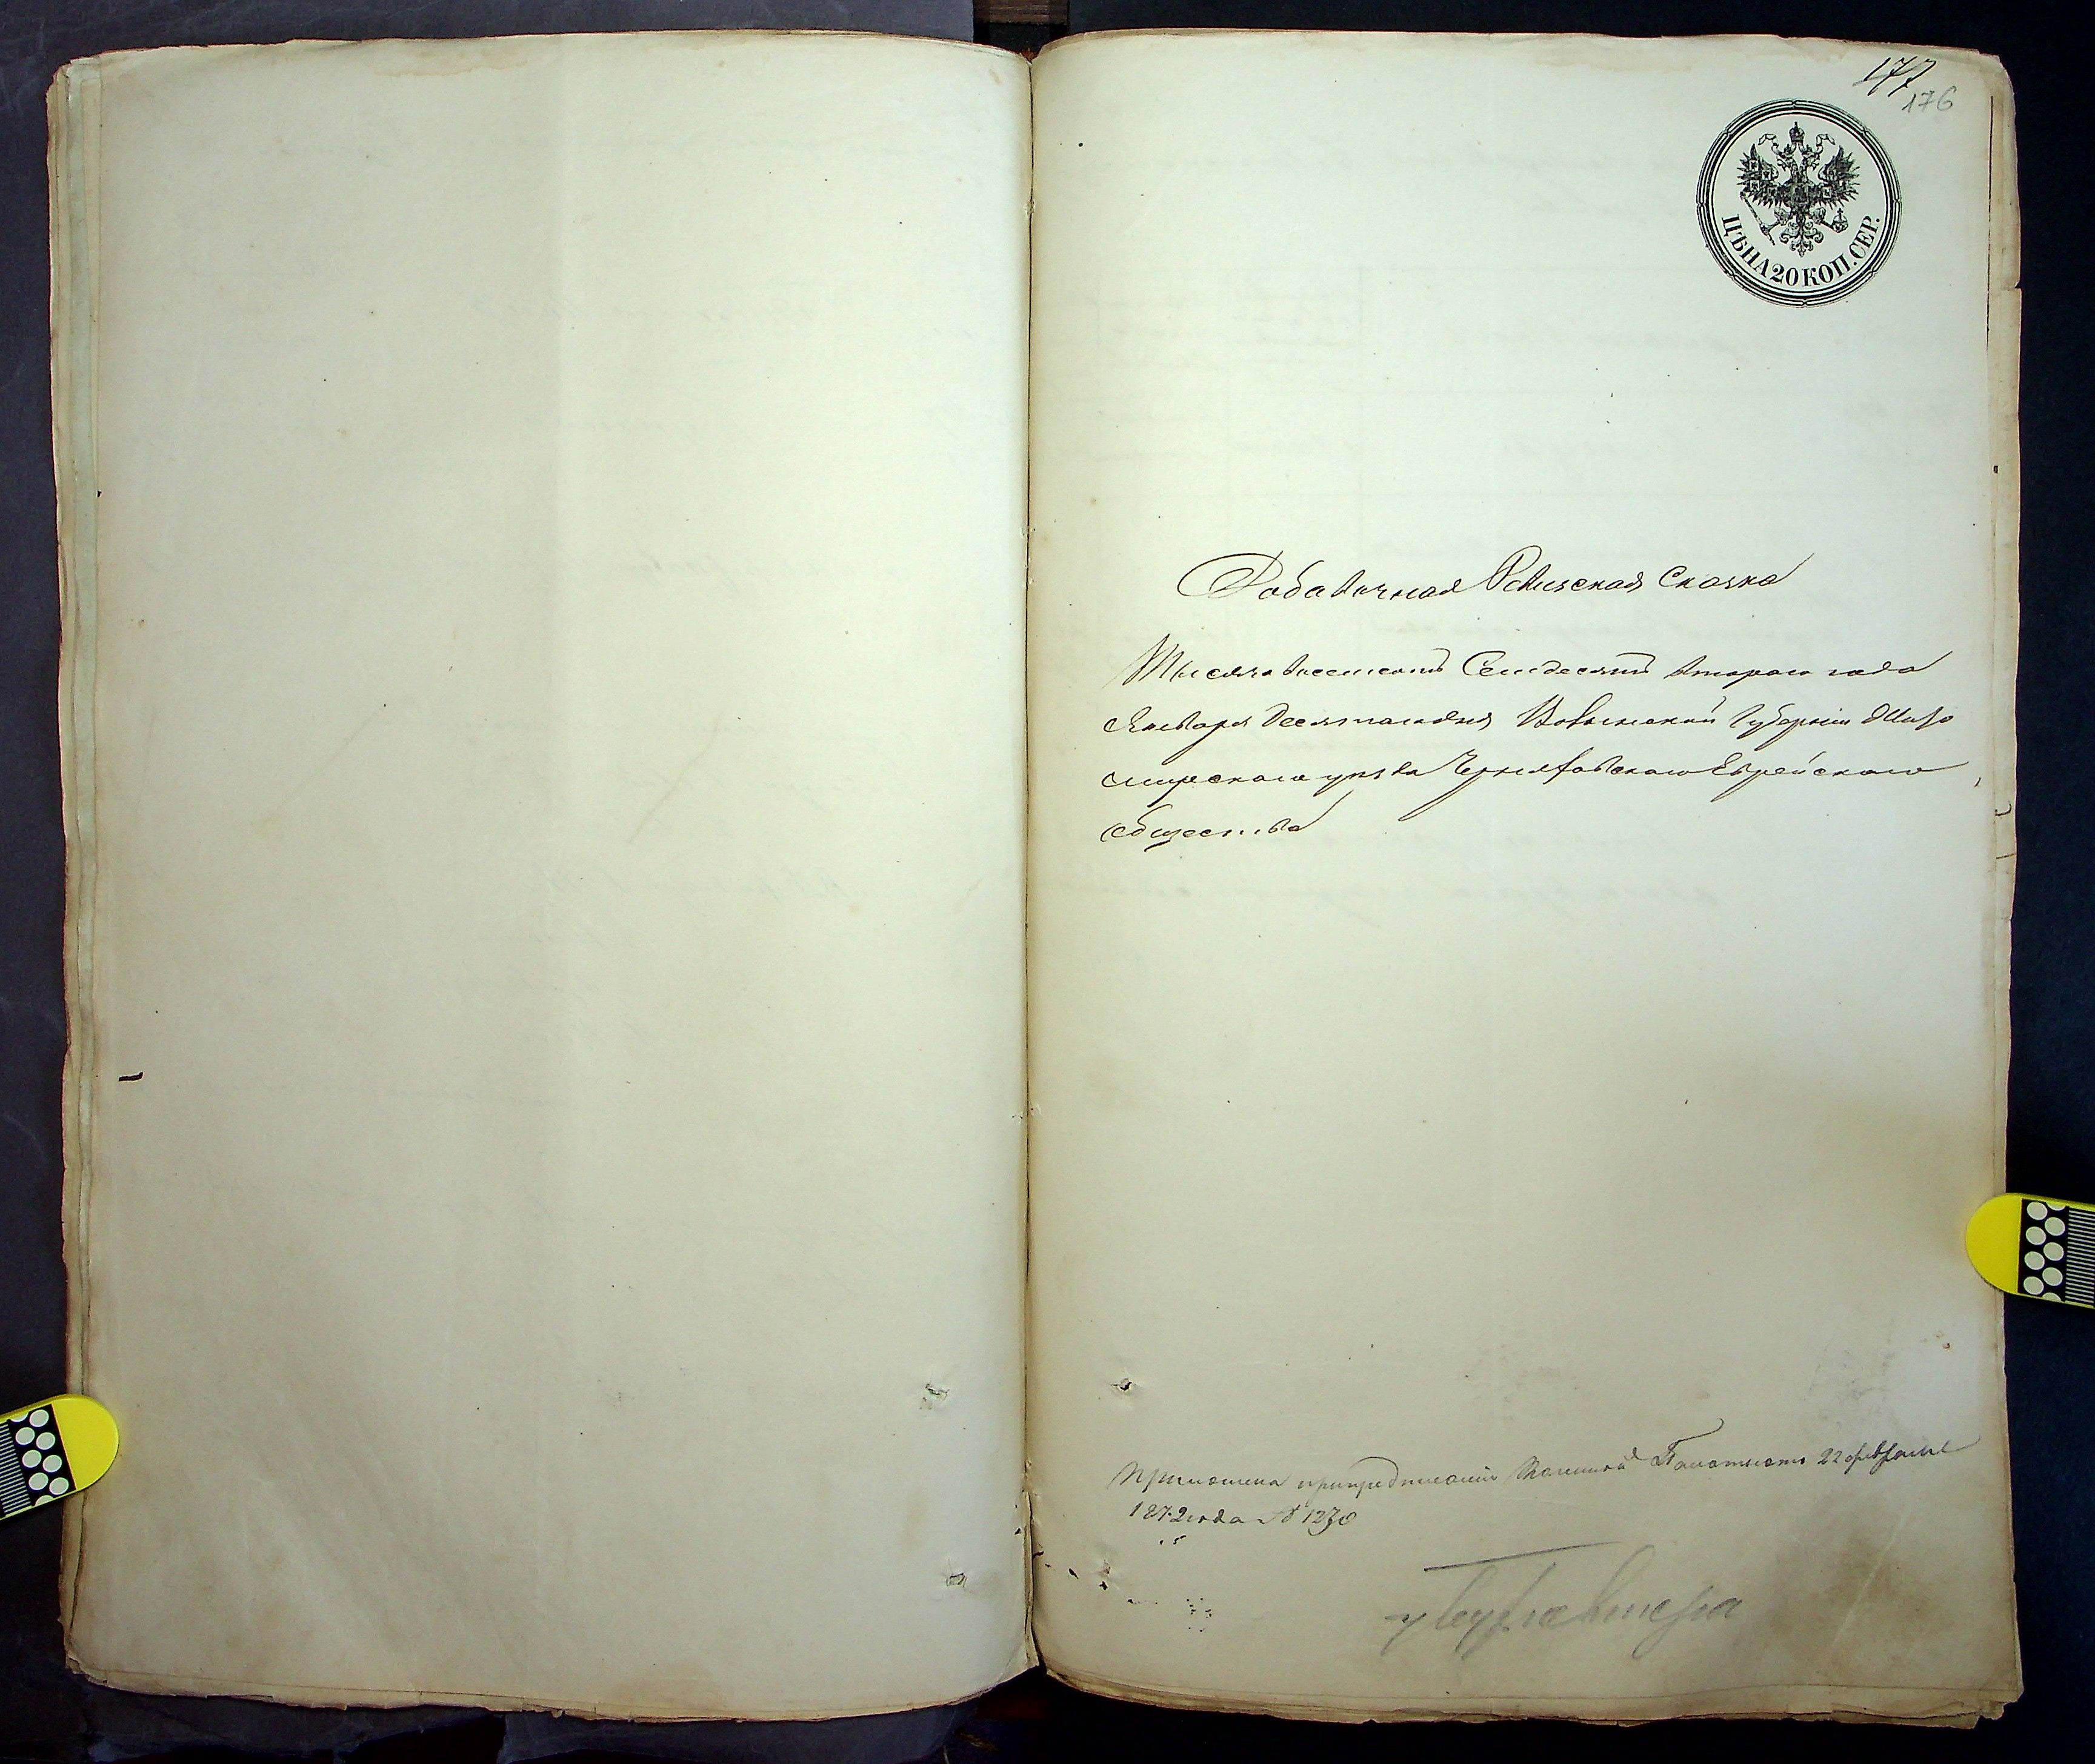 177
176
ЦѢНА 20 КОП. СЕР.
Добавочная Ревизская Сказка
Тысяча восемсотъ Семдесятъ втораго года
Января десятаго дня Волынской Губерніи Жито
мирскаго уѣзда Черняховскаго Еврейскаго
Общества
При предписаніи Казенной Палаты отъ 22 февраля
1872 года № 1270
у Бухгалтера